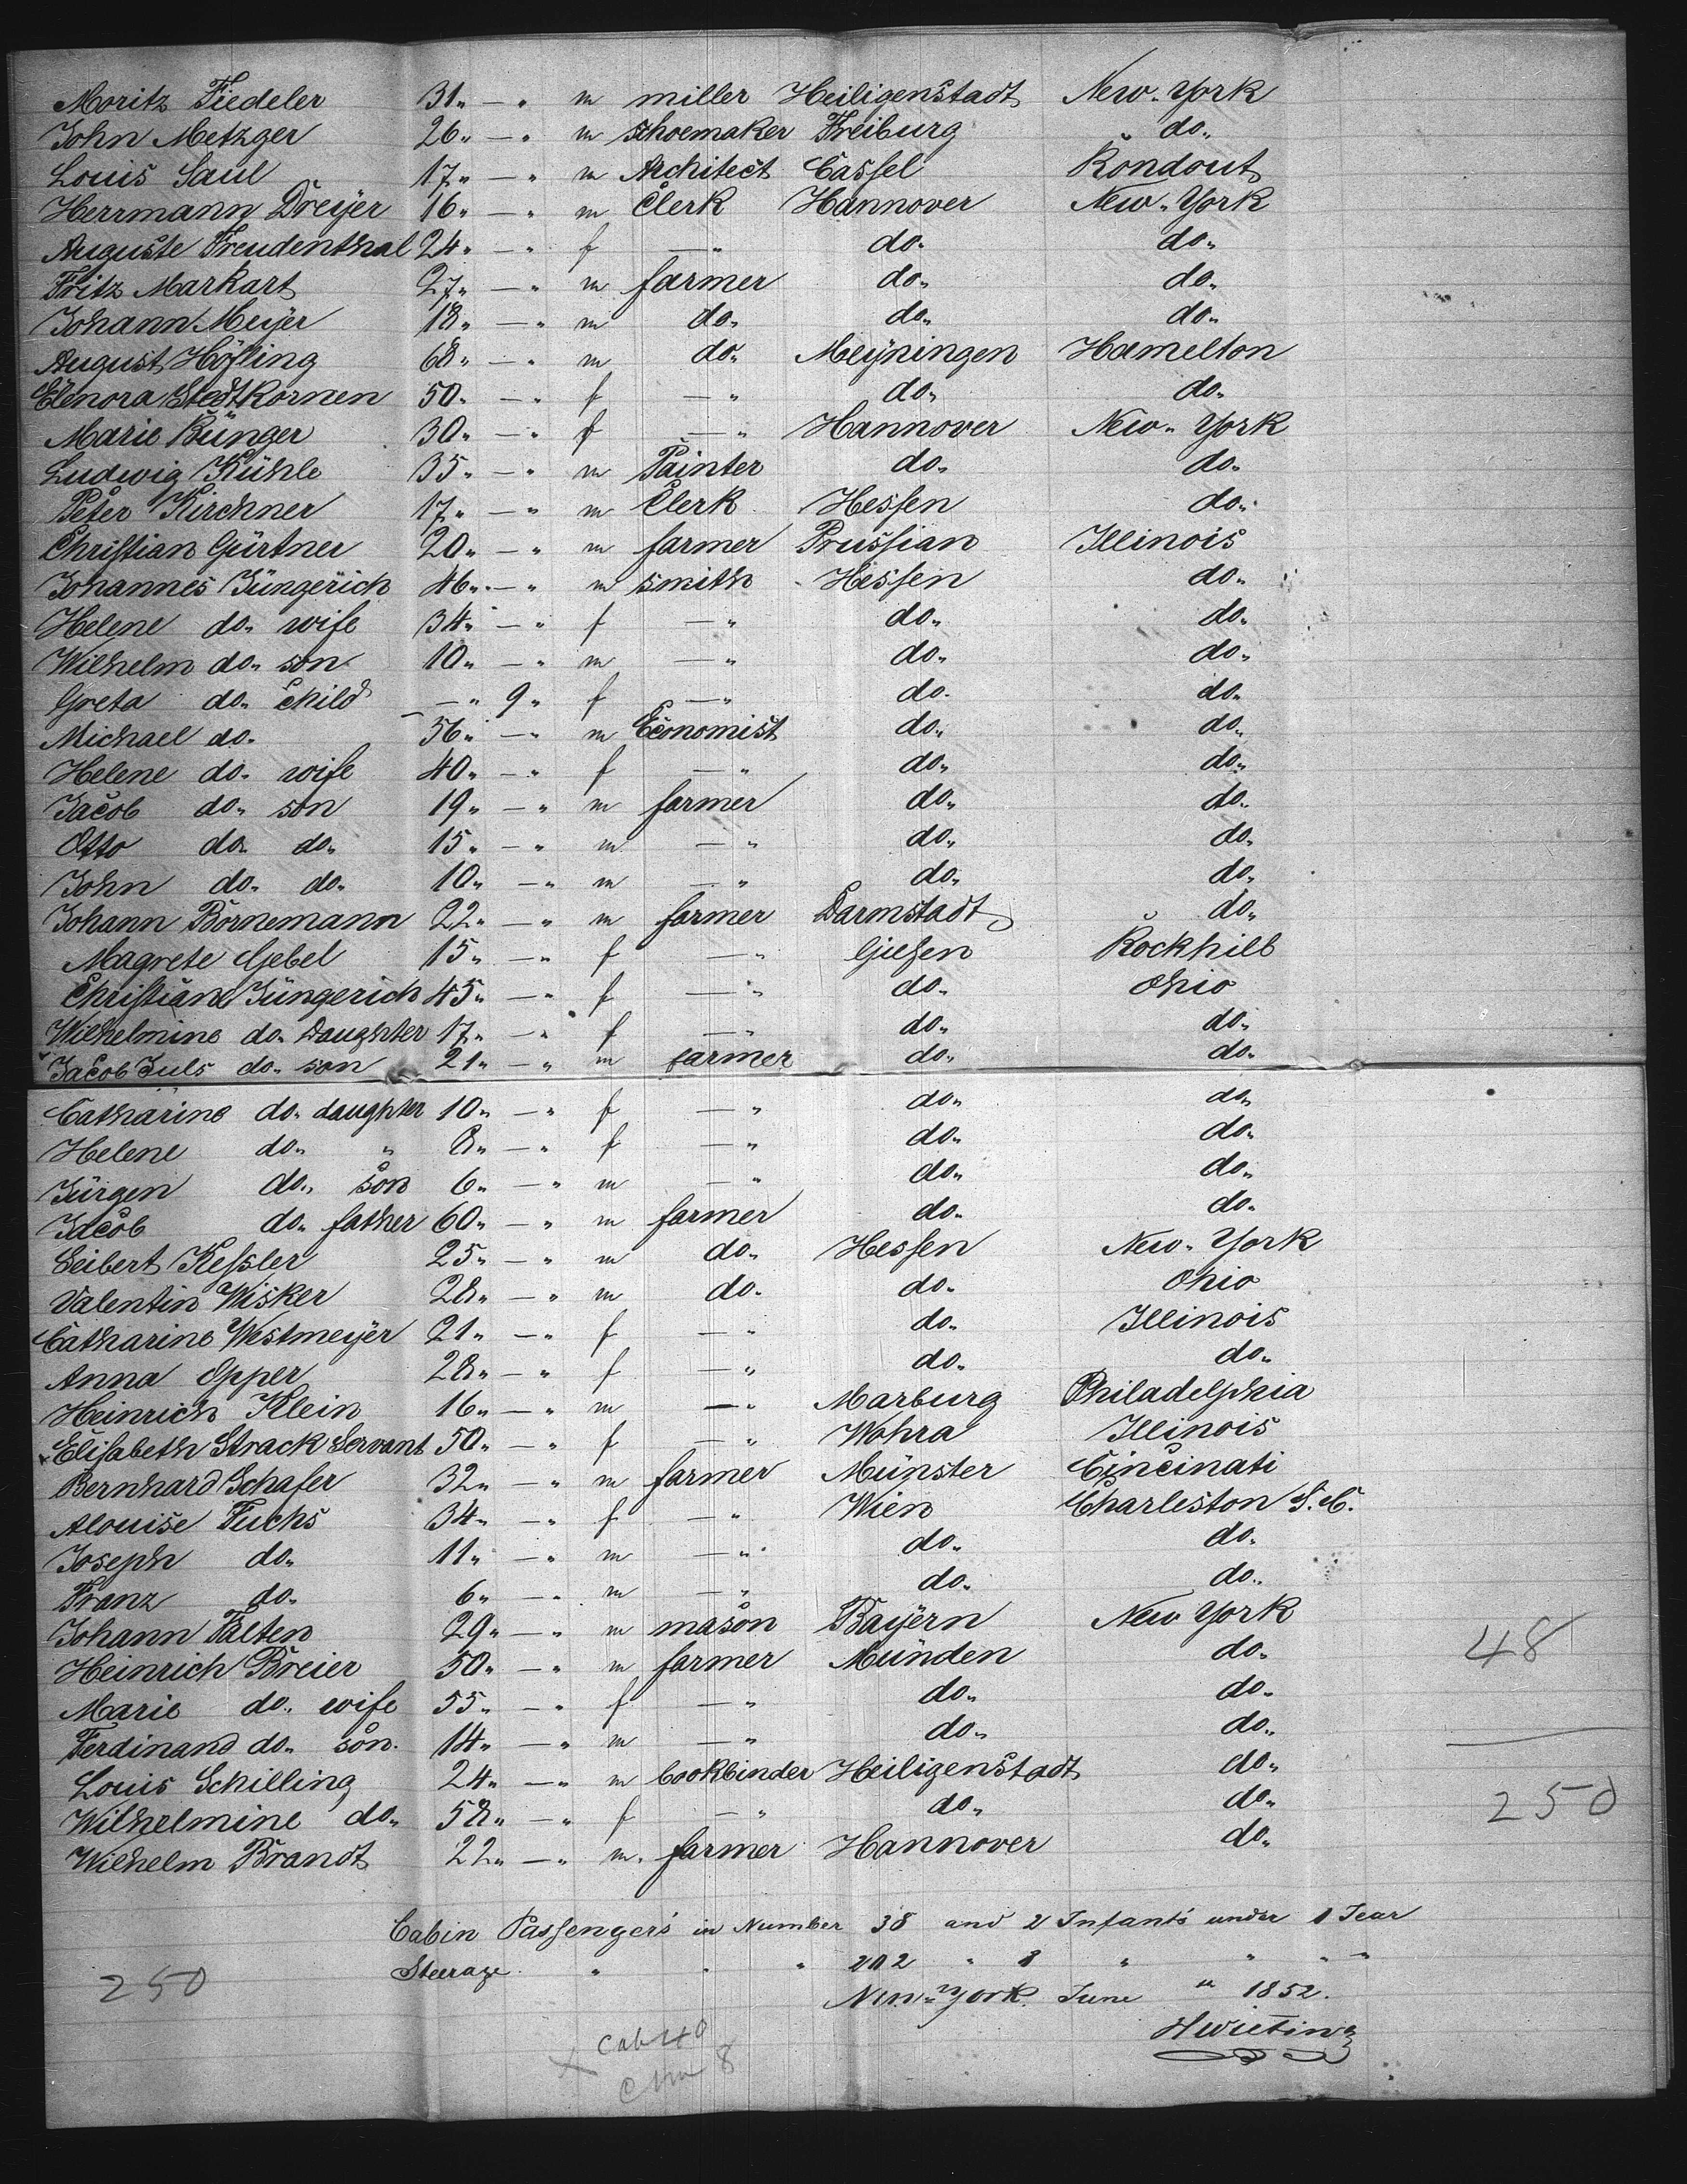 Moritz Fiedeler 31 " — " m miller Heiligenstadt New-York
John Metzger 26 " — " m schoemaker Freiburg do "
Louis Saul 17 " — " m Architect Cassel Rondout
Herrmann Dreyer 16 " — " m Clerk Hannover New-York
Auguste Freudenthal 24 " — " f — " do " do "
Fritz Markart 27 " — " m farmer do " do "
Johann Meyer 18 " — " m do " do " do "
August Höfling 68 " — " m do " Meyningen Hamelton
Elenora Stedtkornen 50 " — " f — " do " do "
Marie Bünger 30 " — " f — " Hannover New-York
Ludwig Kühle 35 " — " m Painter do " do "
Peter Kirchner 17 " — " m Clerk Hessen do "
Christian Gürtner 20 " — " m farmer Prussian Illinois
Johannes Jüngerich 46 " — " m smith Hessen do "
Helene do " wife 34 " — " f — " do " do "
Wilhelm do " son 10 " — " m — " do " do "
Greta do " Child — " 9 " f — " do " do "
Michael do " 56 " — " m Economist do " do "
Helene do " wife 40 " — " f — " do " do "
Jacob do " son 19 " — " m farmer do " do "
Otto do " do " 15 " — " m — " do " do "
John do " do " 10 " — " m — " do " do "
Johann Bornemann 22 " — " m farmer Darmstadt do "
Magrete Gebel 15 " — " f — " Giesen Rockhill
Christiane Jüngerich 45 " — " f — " do " Ohio
Wilhelmine do " Daughter 17 " — " f — " do " do "
Jacob Juls do " son 21 " — " m farmer do " do "
Catharine do " daughter 10 " — " f — " do " do "
Helene do " " 8 " — " f — " do " do "
Jürgen do " son 6 " — " m — " do " do "
Jacob do " father 60 " — " m farmer do " do "
Seibert Kessler 25 " — " m do " Hessen New-York
Valentin Wisker 28 " — " m do " do " Ohio
Catharine Westmeyer 21 " — " f — " do " Illinois
Anna Opper 28 " — " f — " do " do "
Heinrich Klein 16 " — " m — " Marburg Philadelphia
Elisabeth Strack Servant 50 " — " f — " Wohra Illinois
Bernhard Schafer 32 " — " m farmer Münster Cincinati
Alouise Fuchs 34 " — " f — " Wien Charleston S.C.
Joseph do " 11 " — " m — " do " do "
Franz do " 6 " — " m — " do " do "
Johann Falten 29 " — " m mason Bayern New York
Heinrich Breier 50 " — " m farmer Münden do " 48
Marie do " wife 55 " — " f — " do " do "
Ferdinand do " son 14 " — " m — " do " do "
Louis Schilling 24 " — " m bookbinder Heiligenstadt do "
Wilhelmine do " 58 " — " f — " do " do " 250
Wilhelm Brandt 22 " — " m farmer Hannover do "
Cabin Passengers in Number 38 and 2 Infants under 1 Year
Steerage " " " 202 " 8 " " " "
250 New-York June " 1852.
HWieting
Cab 40
8